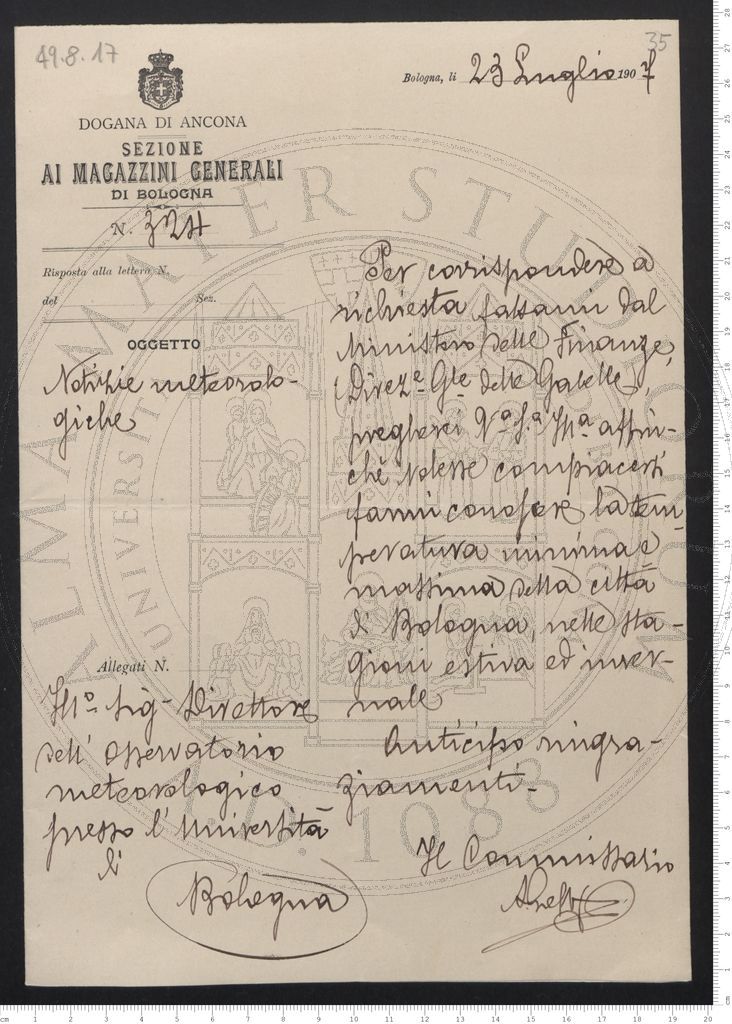 49.8.17
35
Bologna, li 23 Luglio 1907
DOGANA DI ANCONA
SEZIONE
AI MAGAZZINI GENERALI
DI BOLOGNA
N. 324
Risposta alla lettera N.
del Sez.
OGGETTO
Notizie meteorolo-
giche
Per corrispondere a
richiesta fattami dal
Ministero delle Finanze,
Direz.e G.le delle Gabelle,
pregherei V.a S.a Ill.a affin-
chè volesse compiacersi
farmi conoscere la tem-
peratura minima e
massima della città
di Bologna, nelle sta-
gioni estiva ed inver-
nale
Anticipo ringra-
ziamenti.
Il Commissario
Allegati N.
Ill.o Sig. Direttore
dell' Osservatorio
meteorologico
presso l'Università
di
Bologna
ALMA MATER STUDIORUM
A.D. 1088